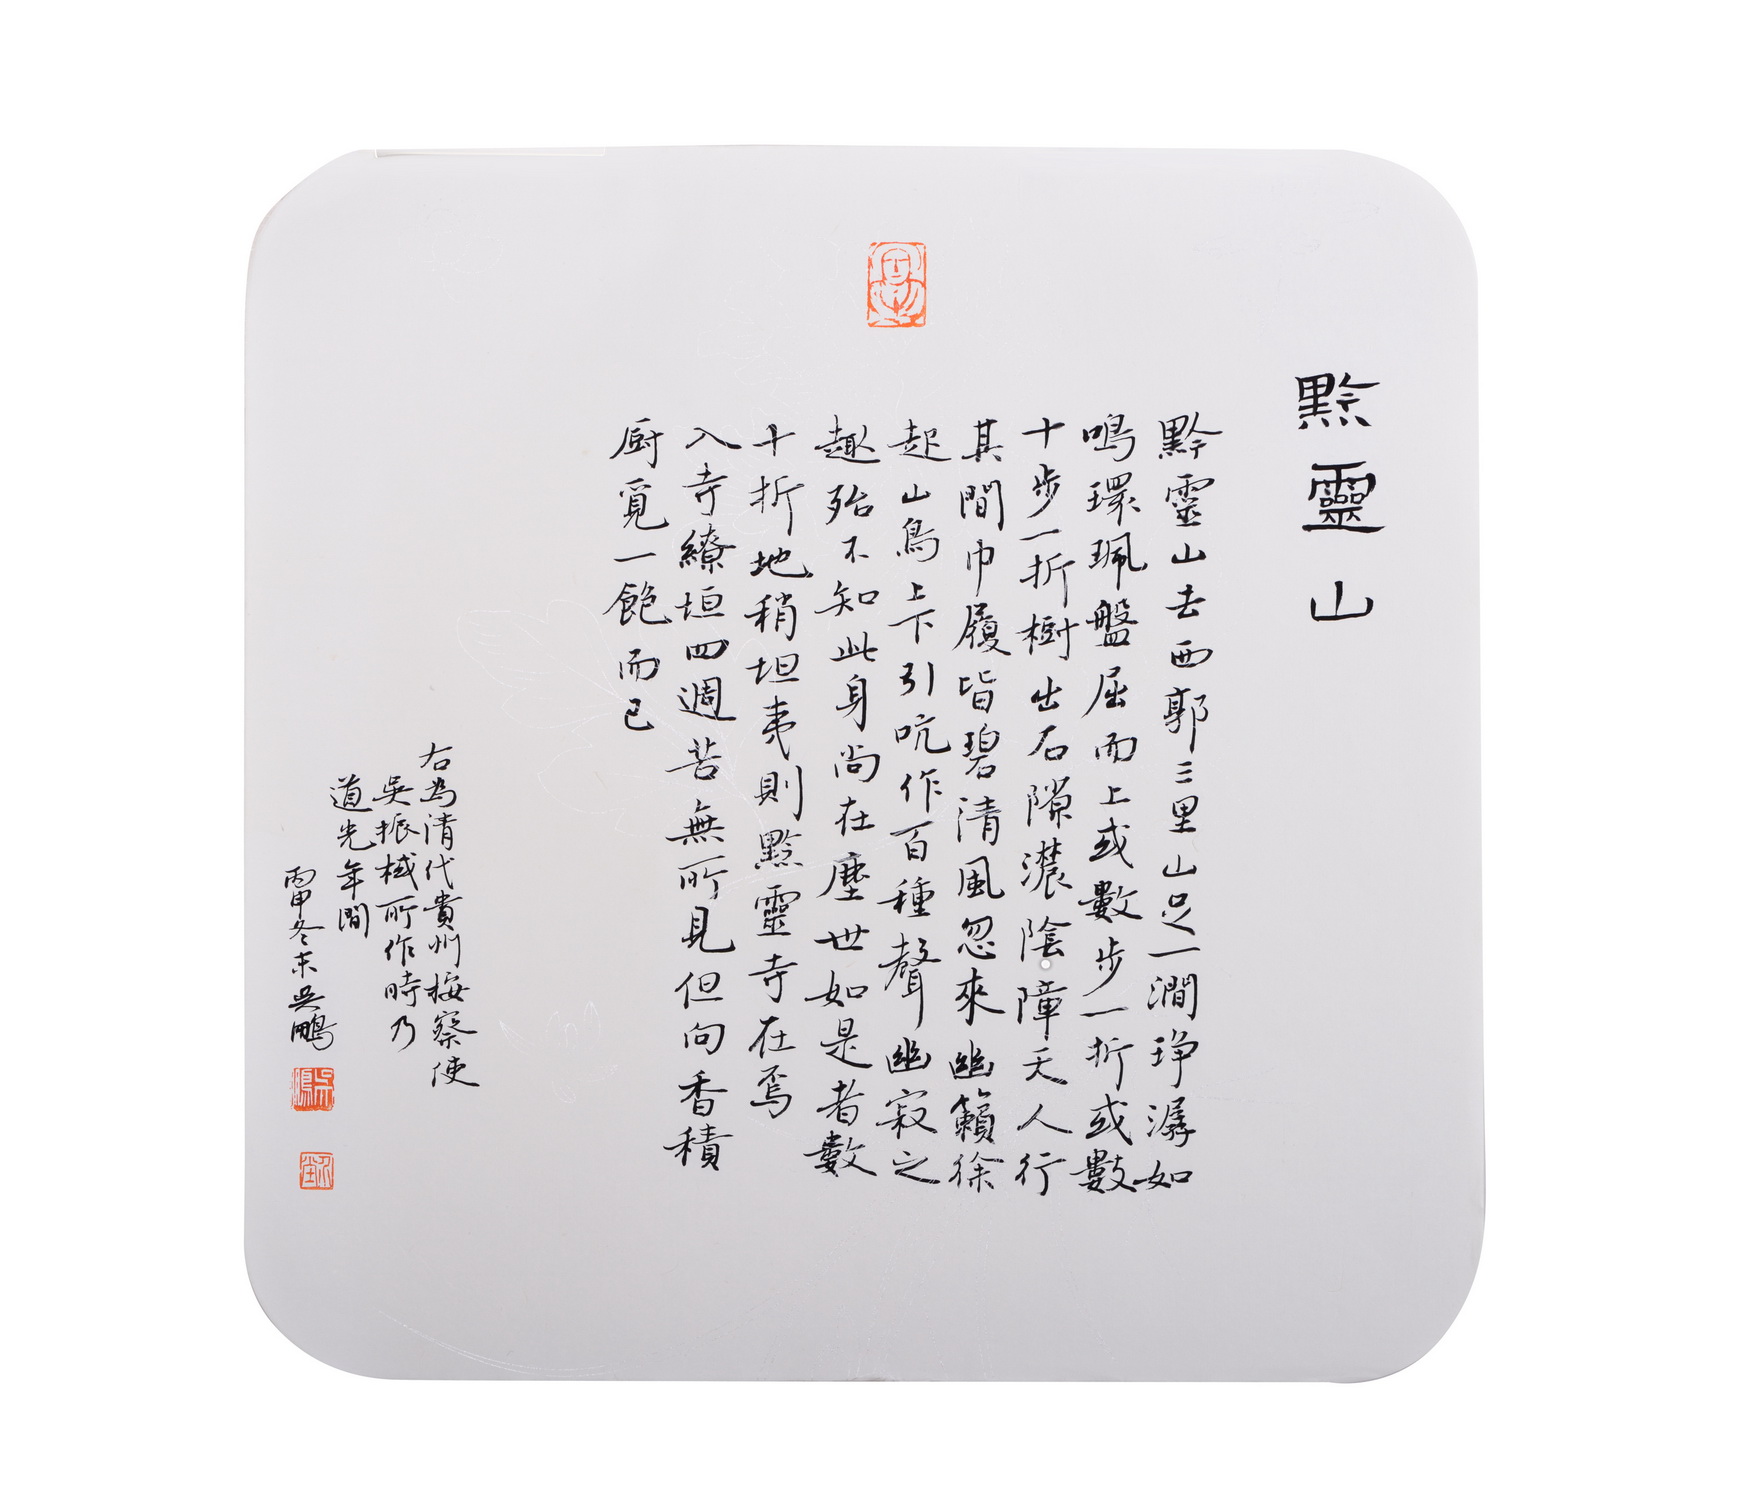 黔靈山
黔靈山去西郭三里山足一澗琤潺如
鳴環珮盤屈而上或數步一折或數
十步一折樹出石隙濃陰障天人行
其間巾履皆碧清風忽來幽籟徐
起山鳥上下引吭作百種聲幽寂之
趣殆不知此身尚在塵世如是者數
十折地稍坦夷則黔靈寺在焉
入寺繚垣四週苦無所見但向香積
厨覓一飽而已
右為清代貴州按察使
吳振棫所作時乃
道光年間
丙申冬末吳鵬
吳鵬